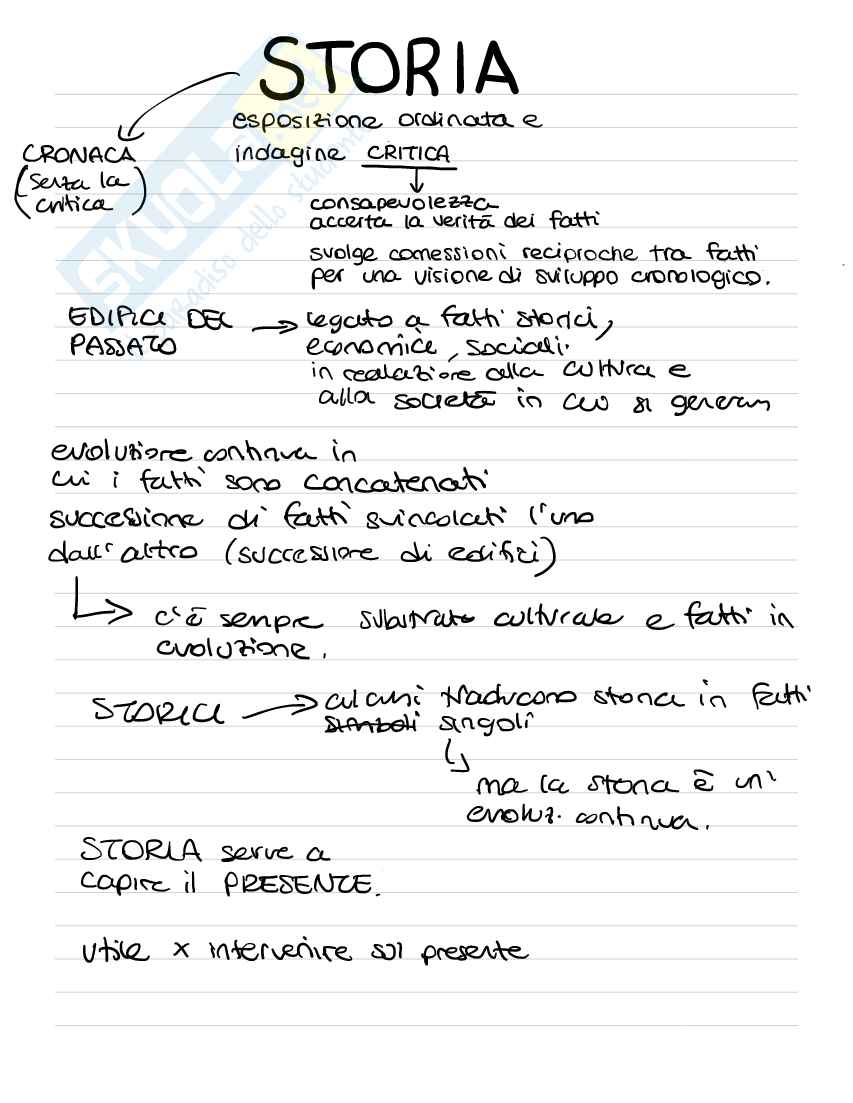 STORIA
esposizione ordinata e
indagine CRITICA
CRONACA
(senza la
critica)
consapevolezza
accerta la verità dei fatti
svolge comessioni reciproche tra fatti
per una visione di sviluppo cronologico.
EDIFICI DEL
PASSATO
legato a fatti storici,
economici, sociali.
in realazione alla cultura e
alla società in cui si generan
evoluzione continua in
cui i fatti sono concatenati
successione di fatti svincolati l'uno
dall'altro (successione di edifici)
c'è sempre substrato culturale e fatti in
evoluzione.
STORICI
alcuni traducono storia in fatti
simboli singoli
ma la storia è un'
evoluz. continua.
STORIA serve a
capire il PRESENTE.
utile x intervenire sul presente
SKUOLA.net
paradiso dello studente